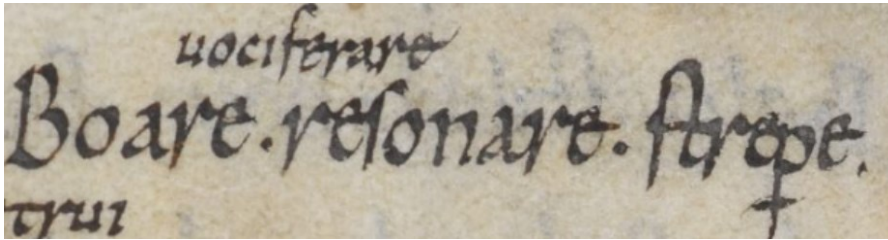 uociferare
Boare . resonare . strepe .
trui